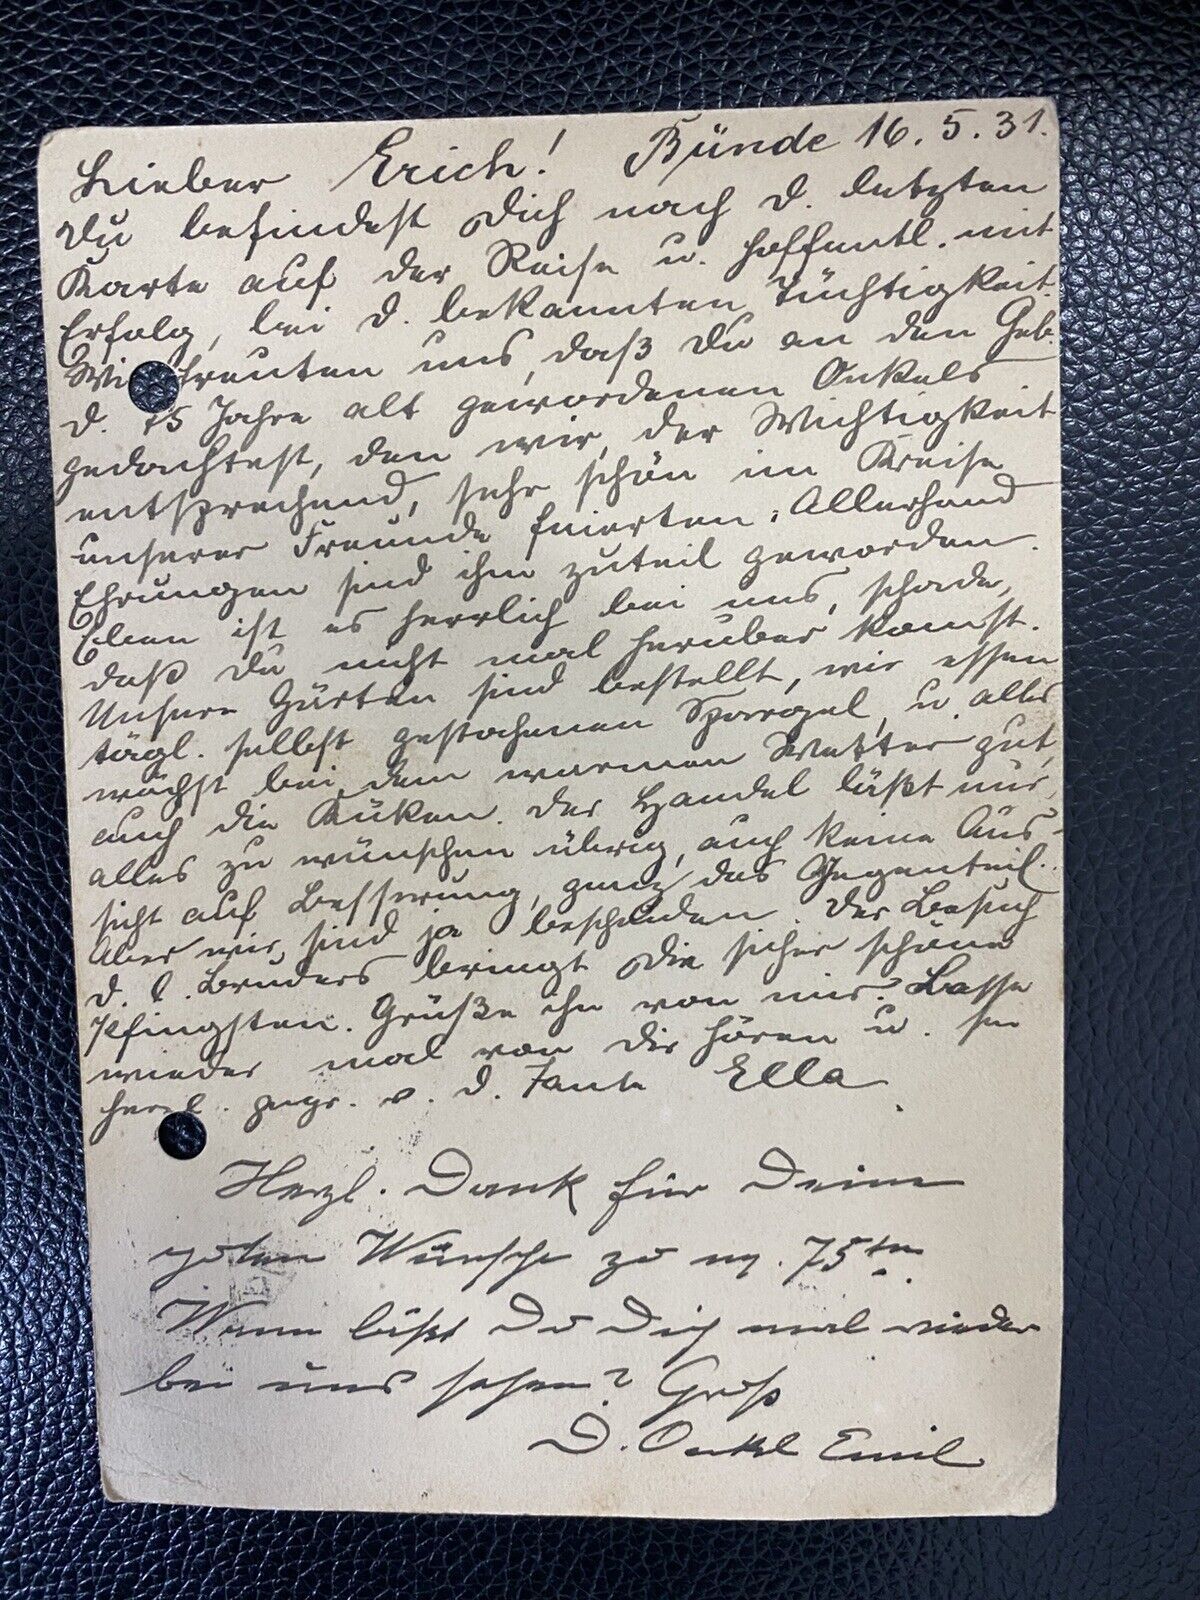 Lieber Erich! Bünde 16.5.31.
Du befindest Dich nach d. letzten
Karte auf der Reise u. hoffentl. mit
Erfolg, bei d. bekannten Tüchtigkeit.
Wir freuten uns, daß Du an den Geb.
d. 75 Jahre alt gewordenen Onkels
gedachtest, den wir, der Wichtigkeit
entsprechend, sehr schön im Kreise
unserer Freunde feierten. Allerhand
Ehrungen sind ihm zuteil geworden.
Eben ist es herrlich bei uns, schade,
daß Du nicht mal herüber kommst.
Unsere Gärten sind bestellt, wir essen
tägl. selbst gestochenen Spargel, u. alles
wächst bei dem warmen Wetter gut,
auch die Küken. Der Handel läßt nur
alles zu wünschen übrig, auch keine Aus-
sicht auf Besserung, ganz das Gegenteil.
Aber wir sind ja bescheiden. Der Besuch
d. l. Bruders bringt Dir sicher schöne
Pfingsten. Grüße ihn von mir. Lasse
wieder mal von Dir hören u. sei
herzl. gegr. v. d. Tante Ella
Herzl. Dank für Deine
guten Wünsche zu m. 75ten.
Wann läßt Du Dich mal wieder
bei uns sehen? Gruß
D. Onkel Emil